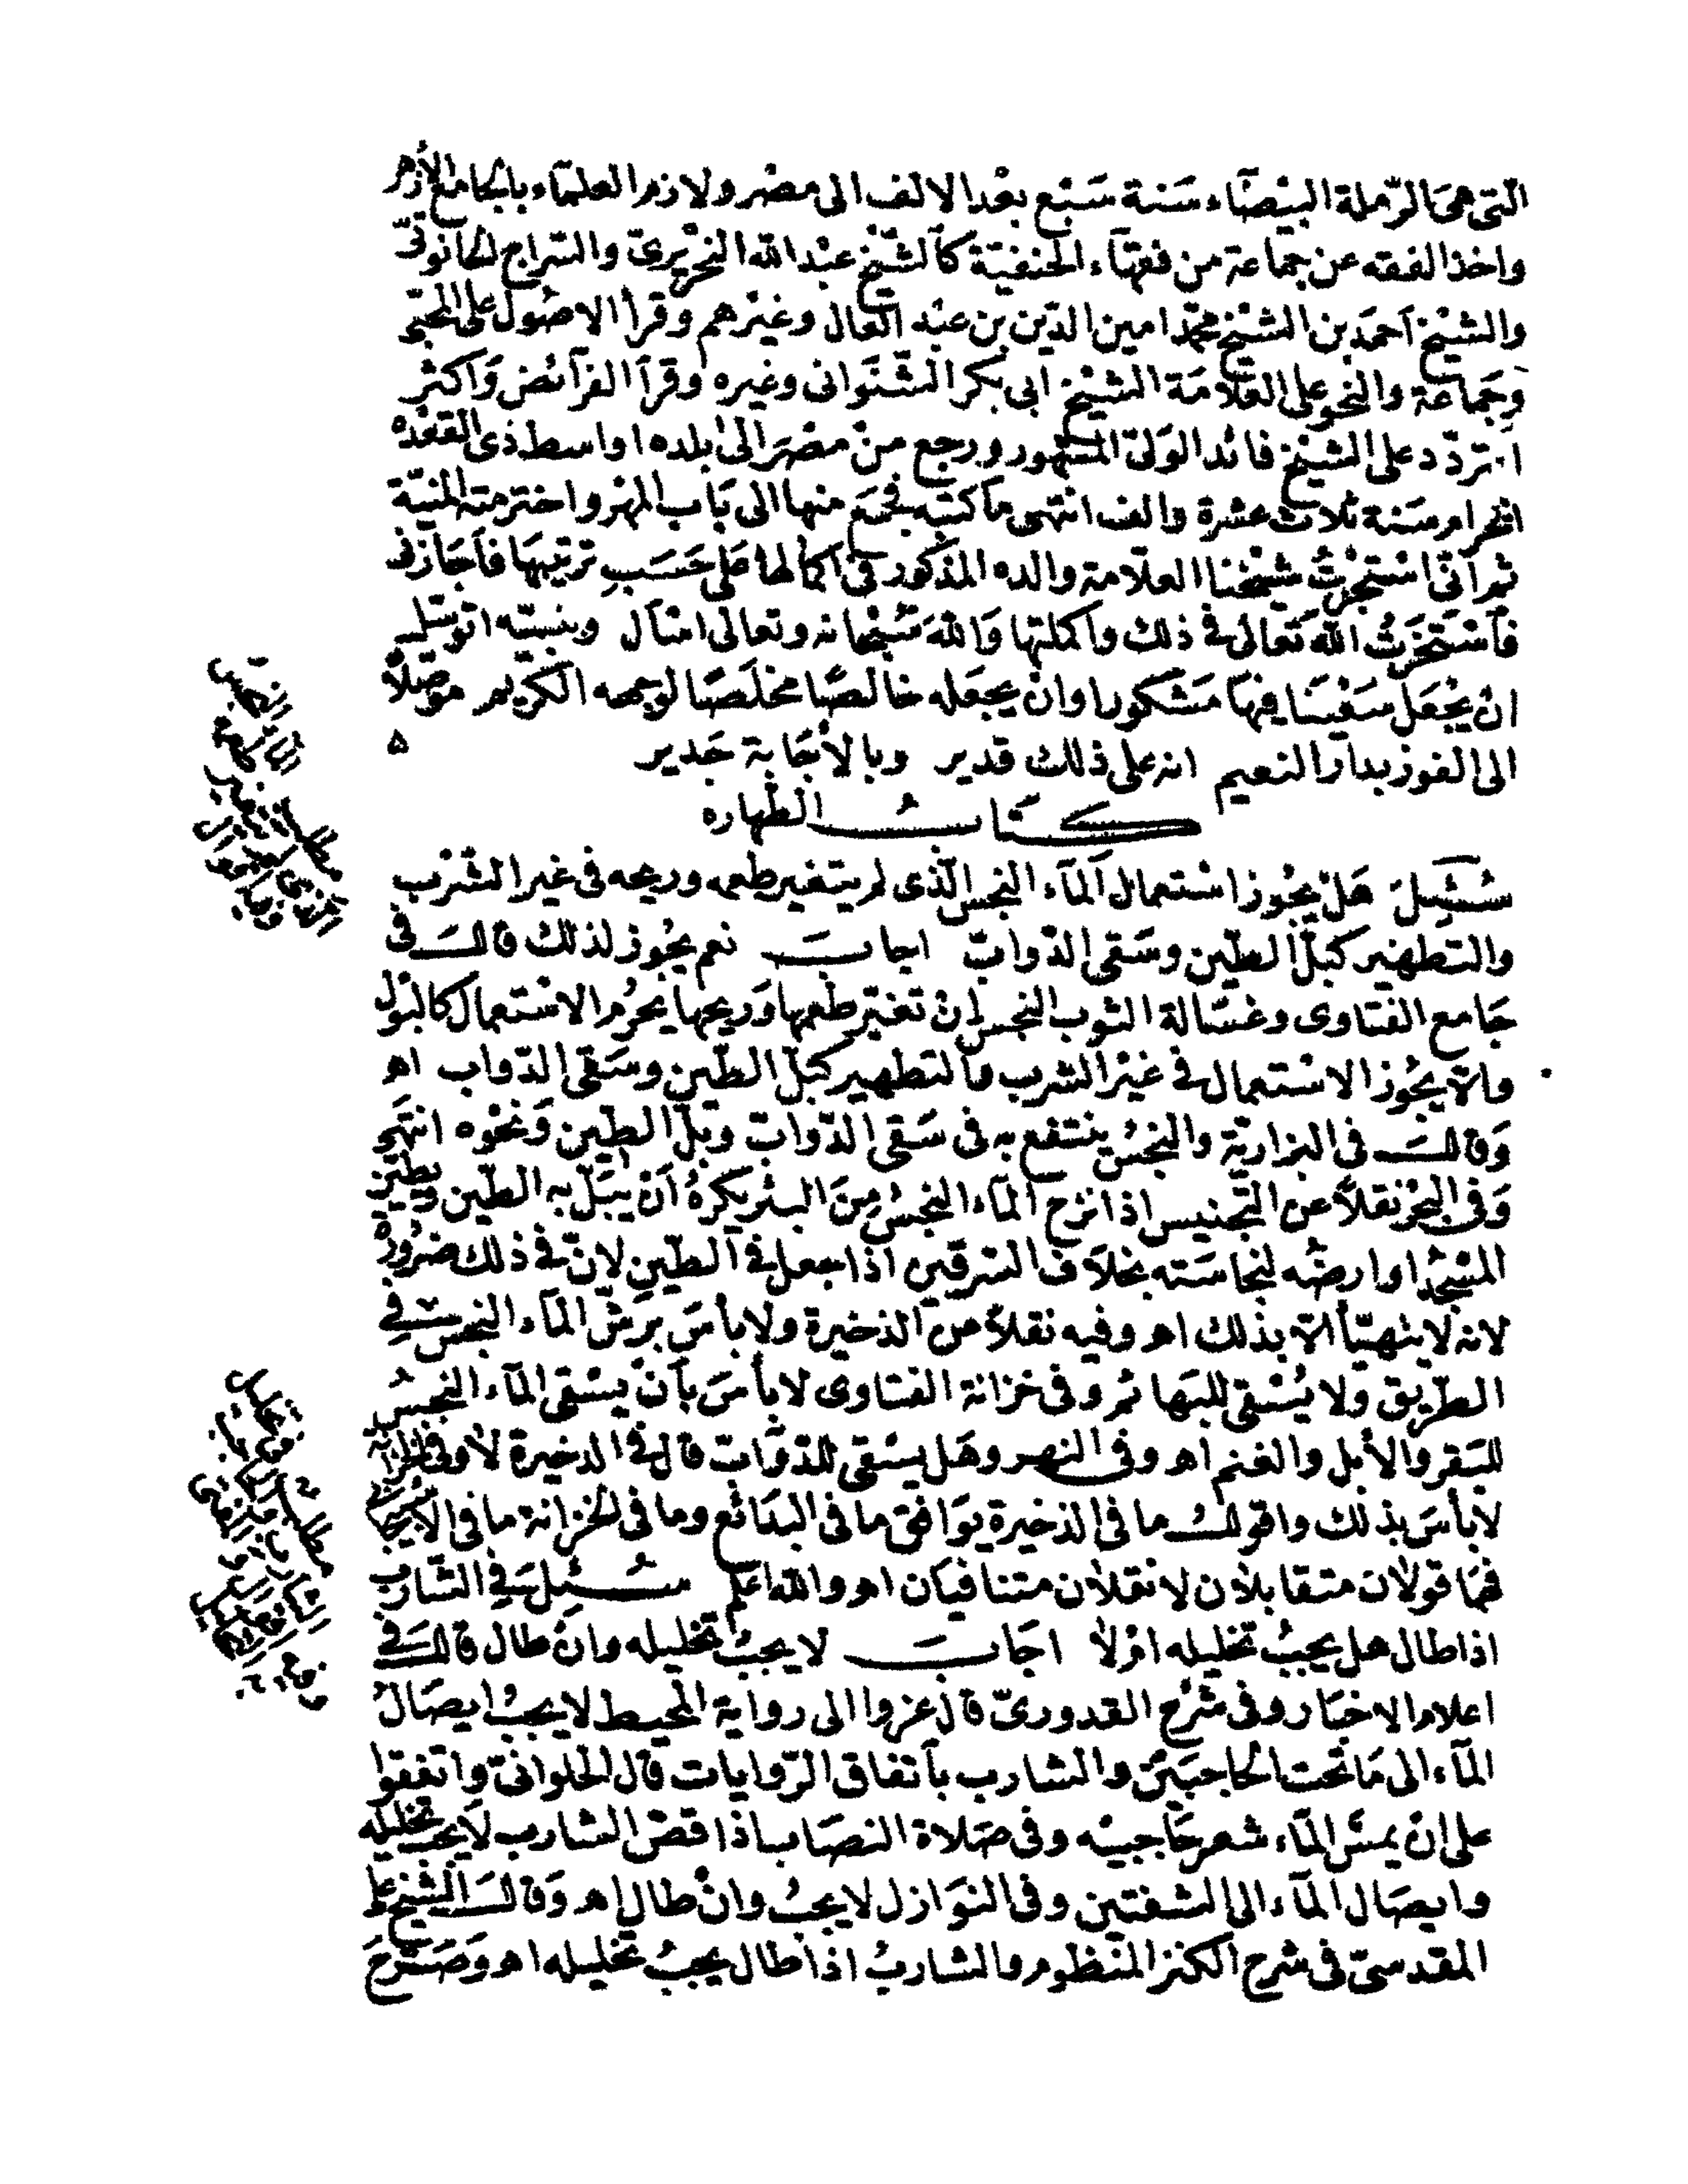 التى هى الرملة البيضاء سنة سبع بعد الالف الى مصر ولازم العلماء بالجامع الأزهر
واخذ الفقه عن جماعة من فقهاء الحنفية كالشيخ عبد الله النحريرى والسراج الحانوتى
والشيخ احمد بن الشيخ محمد امين الدين بن عبد العال وغيرهم وقرأ الاصول على المحبى
وجماعة والنحو على العلامة الشيخ ابى بكر الشنوانى وغيره وقرأ الفرائض واكثر
التردد على الشيخ فائد الولى المشهور ورجع من مصر الى بلده اواسط ذى القعده
الحرام سنة ثلاث عشرة والف انتهى ما كتبه فجمع منها الى باب المهر واخترمته المنية
ثم انى استجزت شيخنا العلامة والده المذكور فى اكمالها على حسب ترتيبها فأجازنى
فاستخرت الله تعالى فى ذلك واكملتها والله سبحانه وتعالى اسأل وبنبيه اتوسل
ان يجعل سعينا فيها مشكورا وان يجعله خالصا مخلصا لوجهه الكريم موصلا
الى الفوز بدار النعيم انه على ذلك قدير وبالأجابة جدير
كتاب الطهاره
سئل هل يجوز استعمال الماء النجس الذى لم يتغير طعمه وريحه فى غير الشرب
والتطهير كبل الطين وسقى الدواب اجاب نعم يجوز لذلك قال فى
جامع الفتاوى وغسالة الثوب النجس ان تغير طعمها وريحها يحرم الاستعمال كالبول
والا يجوز الاستعمال فى غير الشرب والتطهير كبل الطين وسقى الدواب اهـ
وقال فى البزازية والنجس ينتفع به فى سقى الدواب وبل الطين ونحوه انتهى
وفى البحر نقلا عن التجنيس اذا نزح الماء النجس من البئر يكره ان يبل به الطين ويطين
المسجد او ارضه لنجاسته بخلاف السرقين اذا جعل فى الطين لان فى ذلك ضرورة
لانه لا يتهيأ الا بذلك اهـ وفيه نقلا عن الذخيرة ولا بأس برش الماء النجس فى
الطريق ولا يسقى للبهائم وفى خزانة الفتاوى لا بأس بأن يسقى الماء النجس
للبقر والأبل والغنم اهـ وفى النهر وهل يسقى للدواب قال فى الذخيرة لا وفى الخزانة
لا بأس بذلك واقول ما فى الذخيرة يوافق ما فى البدائع وما فى الخزانة ما فى
فهما قولان متقابلان لا نقلان متنافيان اهـ والله اعلم سئل فى الشارب
اذا طال هل يجب تخليله ام لا اجاب لا يجب تخليله وان طال قال فى
اعلام الاخيار وفى شرح القدورى قال عزوا الى رواية المحيط لا يجب ايصال
الماء الى ما تحت الحاجبين والشارب باتفاق الروايات قال الحلوانى واتفقوا
على ان يمس الماء شعر حاجبيه وفى صلاة النصاب اذا قص الشارب لا يجب تخليله
وايصال الماء الى الشفتين وفى النوازل لا يجب وان طال اهـ وقال الشيخ على
المقدسى فى شرح الكنز المنظوم والشارب اذا طال يجب تخليله اهـ وصرح